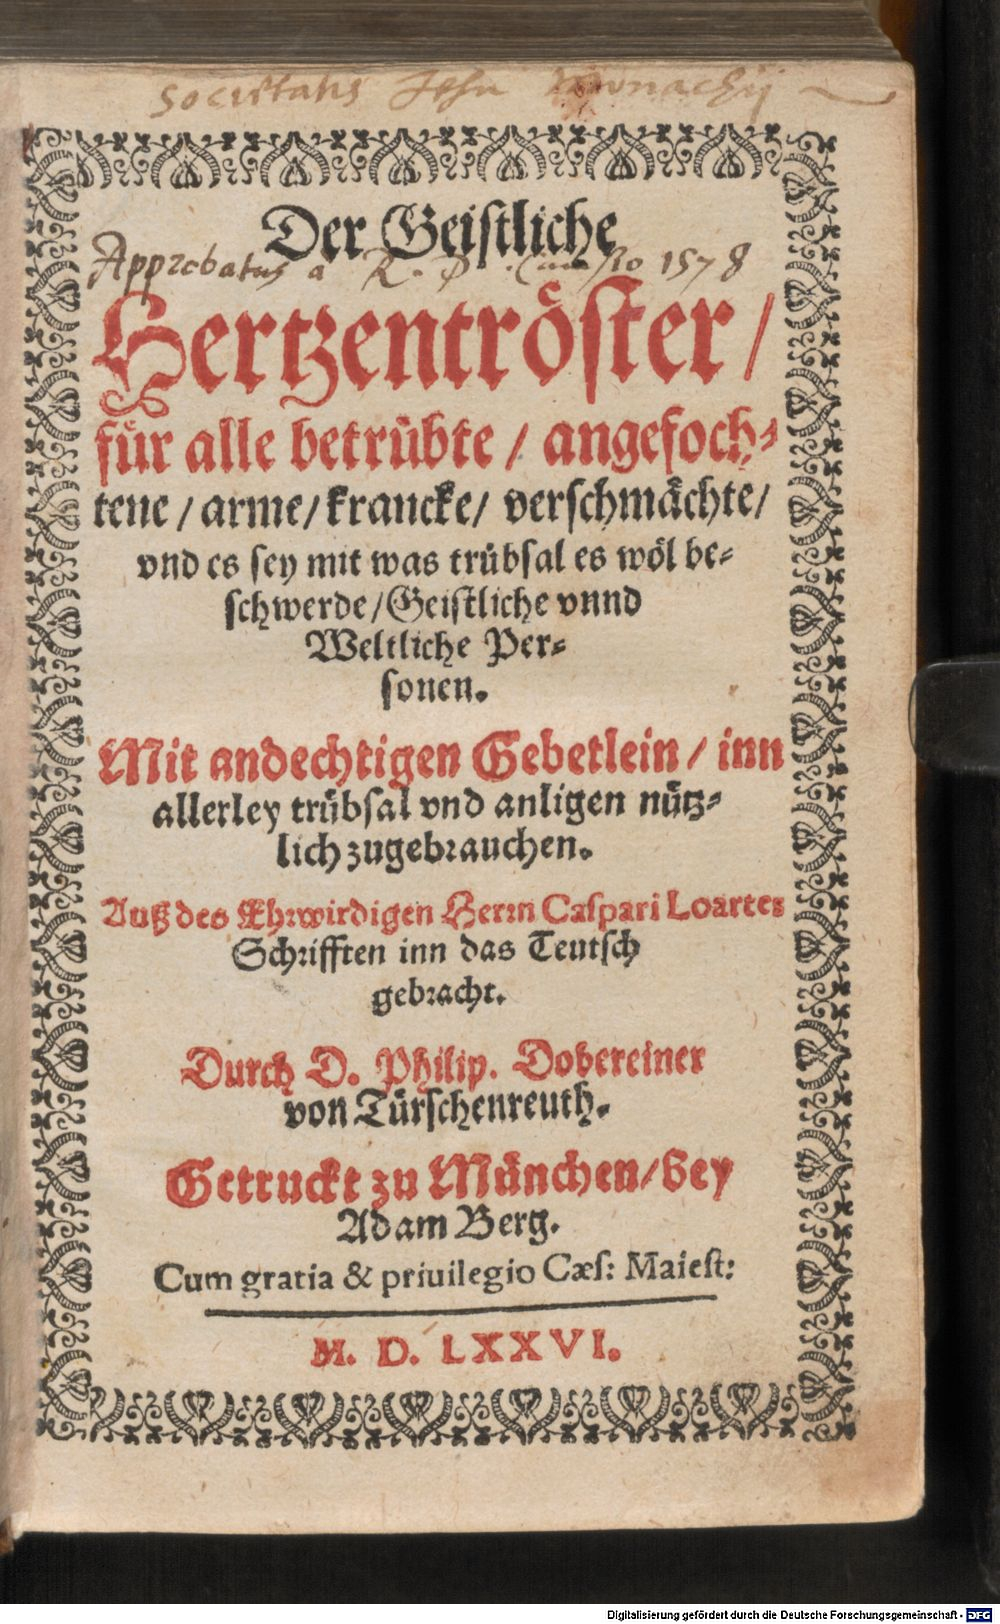 Societatis Jesu Monachij
Der Geistliche
Approbatus a R. P. Canisio 1578
Hertzentröster /
für alle betrübte / angefoch-
tene / arme / krancke / verschmächte /
vnd es sey mit was trübsal es wöl be-
schwerde / Geistliche vnnd
Weltliche Per-
sonen.
Mit andechtigen Gebetlein / inn
allerley trübsal vnd anligen nütz-
lich zugebrauchen.
Auß des Ehrwirdigen Herrn Caspari Loartes
Schrifften inn das Teutsch
gebracht.
Durch D. Philip. Dobereiner
von Türschenreuth.
Getruckt zu München / bey
Adam Berg.
Cum gratia & priuilegio Cæs: Maiest:
M. D. LXXVI.
Digitalisierung gefördert durch die Deutsche Forschungsgemeinschaft - DFG